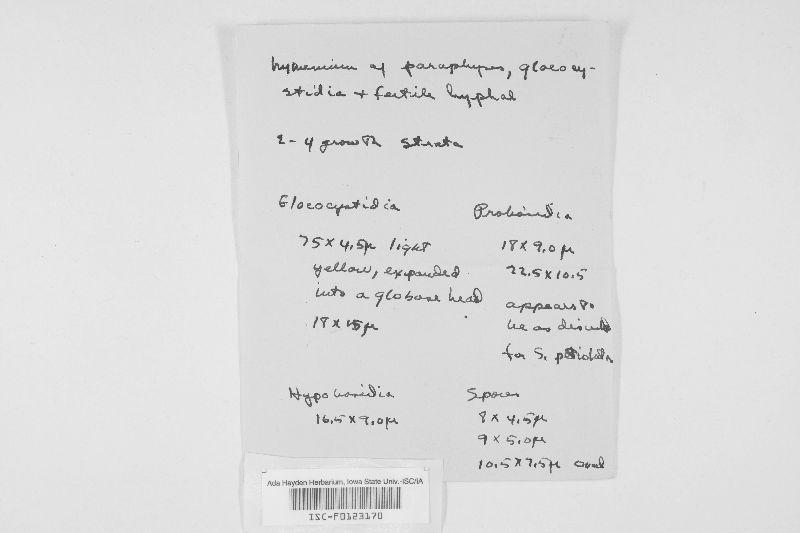 hymenium of paraphyses, gloeocy-
stidia + fertile hyphae
2-4 growth strata
Gloeocystidia
75 x 4.5µ light
yellow, expanded
into a globose head
18 x 15µ
Probasidia
18 x 9.0µ
22.5 x 10.5
appears to
be as
for S.
Hypobasidia
16.5 x 9.0µ
Spores
8 x 4.5µ
9 x 5.0µ
10.5 x 7.5µ oval
Ada Hayden Herbarium, Iowa State Univ.-ISC/IA
ISC-F0123170